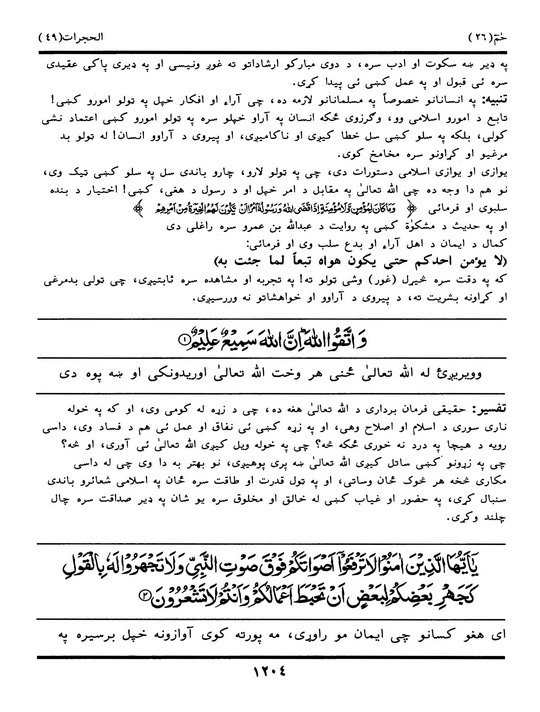 حٰمٓ(٢٦) الحجرات(٤٩)
په ډیر ښه سکوت او ادب سره، د دوی مبارکو ارشاداتو ته غوږ ونیسی او په ډیری پاکی عقیدی
سره ئی قبول او په عمل کښی ئی پیدا کړی.
تنبیه: په انسانانو خصوصاً په مسلمانانو لازمه ده، چی آراء او افکار خپل په ټولو امورو کښی!
تابع د امورو اسلامی وو، وګرزوی ځکه انسان په آراو خپلو سره په ټولو امورو کښی اعتماد نشی
کولی، بلکه په سلو کښی سل خطا کیږی او ناکامیږی، او پیروی د آراوو انسان! له ټولو بد
مرغیو او کړاونو سره مخامخ کوی.
یوازی او یوازی اسلامی دستورات دی، چی په ټولو لارو، چارو باندی سل په سلو کښی ټیک وی،
نو هم دا وجه ده چی الله تعالیٰ په مقابل د امر خپل او د رسول د هغی، کښی! اختیار د بنده
سلبوی او فرمائی ﴿ وَمَا كَانَ لِمُؤْمِنٍ وَلَا مُؤْمِنَةٍ إِذَا قَضَى اللهُ وَرَسُولُهُ أَمْرًا أَنْ يَكُونَ لَهُمُ الْخِيَرَةُ مِنْ أَمْرِهِمْ ﴾
او په حدیث د مشکوٰة کښی په روایت د عبدالله بن عمرو سره راغلی دی
کمال د ایمان د اهل آراء او بدع سلب وی او فرمائی:
(لا یؤمن احدکم حتی یکون هواه تبعاً لما جئت به)
که په دقت سره څیړل (غور) وشی ټولو ته! په تجربه او مشاهده سره ثابتیږی، چی ټولی بدمرغی
او کړاونه بشریت ته، د پیروی د آراوو او خواهشاتو نه وررسیږی.
وَاتَّقُوا اللهَ ۭ اِنَّ اللهَ سَمِيْعٌ عَلِيْمٌ ۝١
وویریږئ له الله تعالیٰ ځنی هر وخت الله تعالیٰ اوریدونکی او ښه پوه دی
تفسیر: حقیقی فرمان برداری د الله تعالیٰ هغه ده، چی د زړه له کومی وی، او که په خوله
ناری سوری د اسلام او اصلاح وهی، او په زړه کښی ئی نفاق او عمل ئی هم د فساد وی، داسی
رویه د هیچا په درد نه خوری ځکه څه؟ چی په خوله ویل کیږی الله تعالیٰ ئی آوری، او څه؟
چی په زړونو کښی ساتل کیږی الله تعالیٰ ښه پری پوهیږی، نو بهتر به دا وی چی له داسی
مکاری څخه هر څوک ځان وساتی، او په ټول قدرت او طاقت سره ځان په اسلامی شعائرو باندی
سنبال کړی، په حضور او غیاب کښی له خالق او مخلوق سره یو شان په ډیر صداقت سره چال
چلند وکړی.
يٰٓاَيُّهَا الَّذِيْنَ اٰمَنُوْا لَا تَرْفَعُوْٓا اَصْوَاتَكُمْ فَوْقَ صَوْتِ النَّبِيِّ وَلَا تَجْهَرُوْا لَهٗ بِالْقَوْلِ
كَجَهْرِ بَعْضِكُمْ لِبَعْضٍ اَنْ تَحْبَطَ اَعْمَالُكُمْ وَاَنْتُمْ لَا تَشْعُرُوْنَ ۝٢
ای هغو کسانو چی ایمان مو راوړی، مه پورته کوی آوازونه خپل برسیره په
١٢٠٤